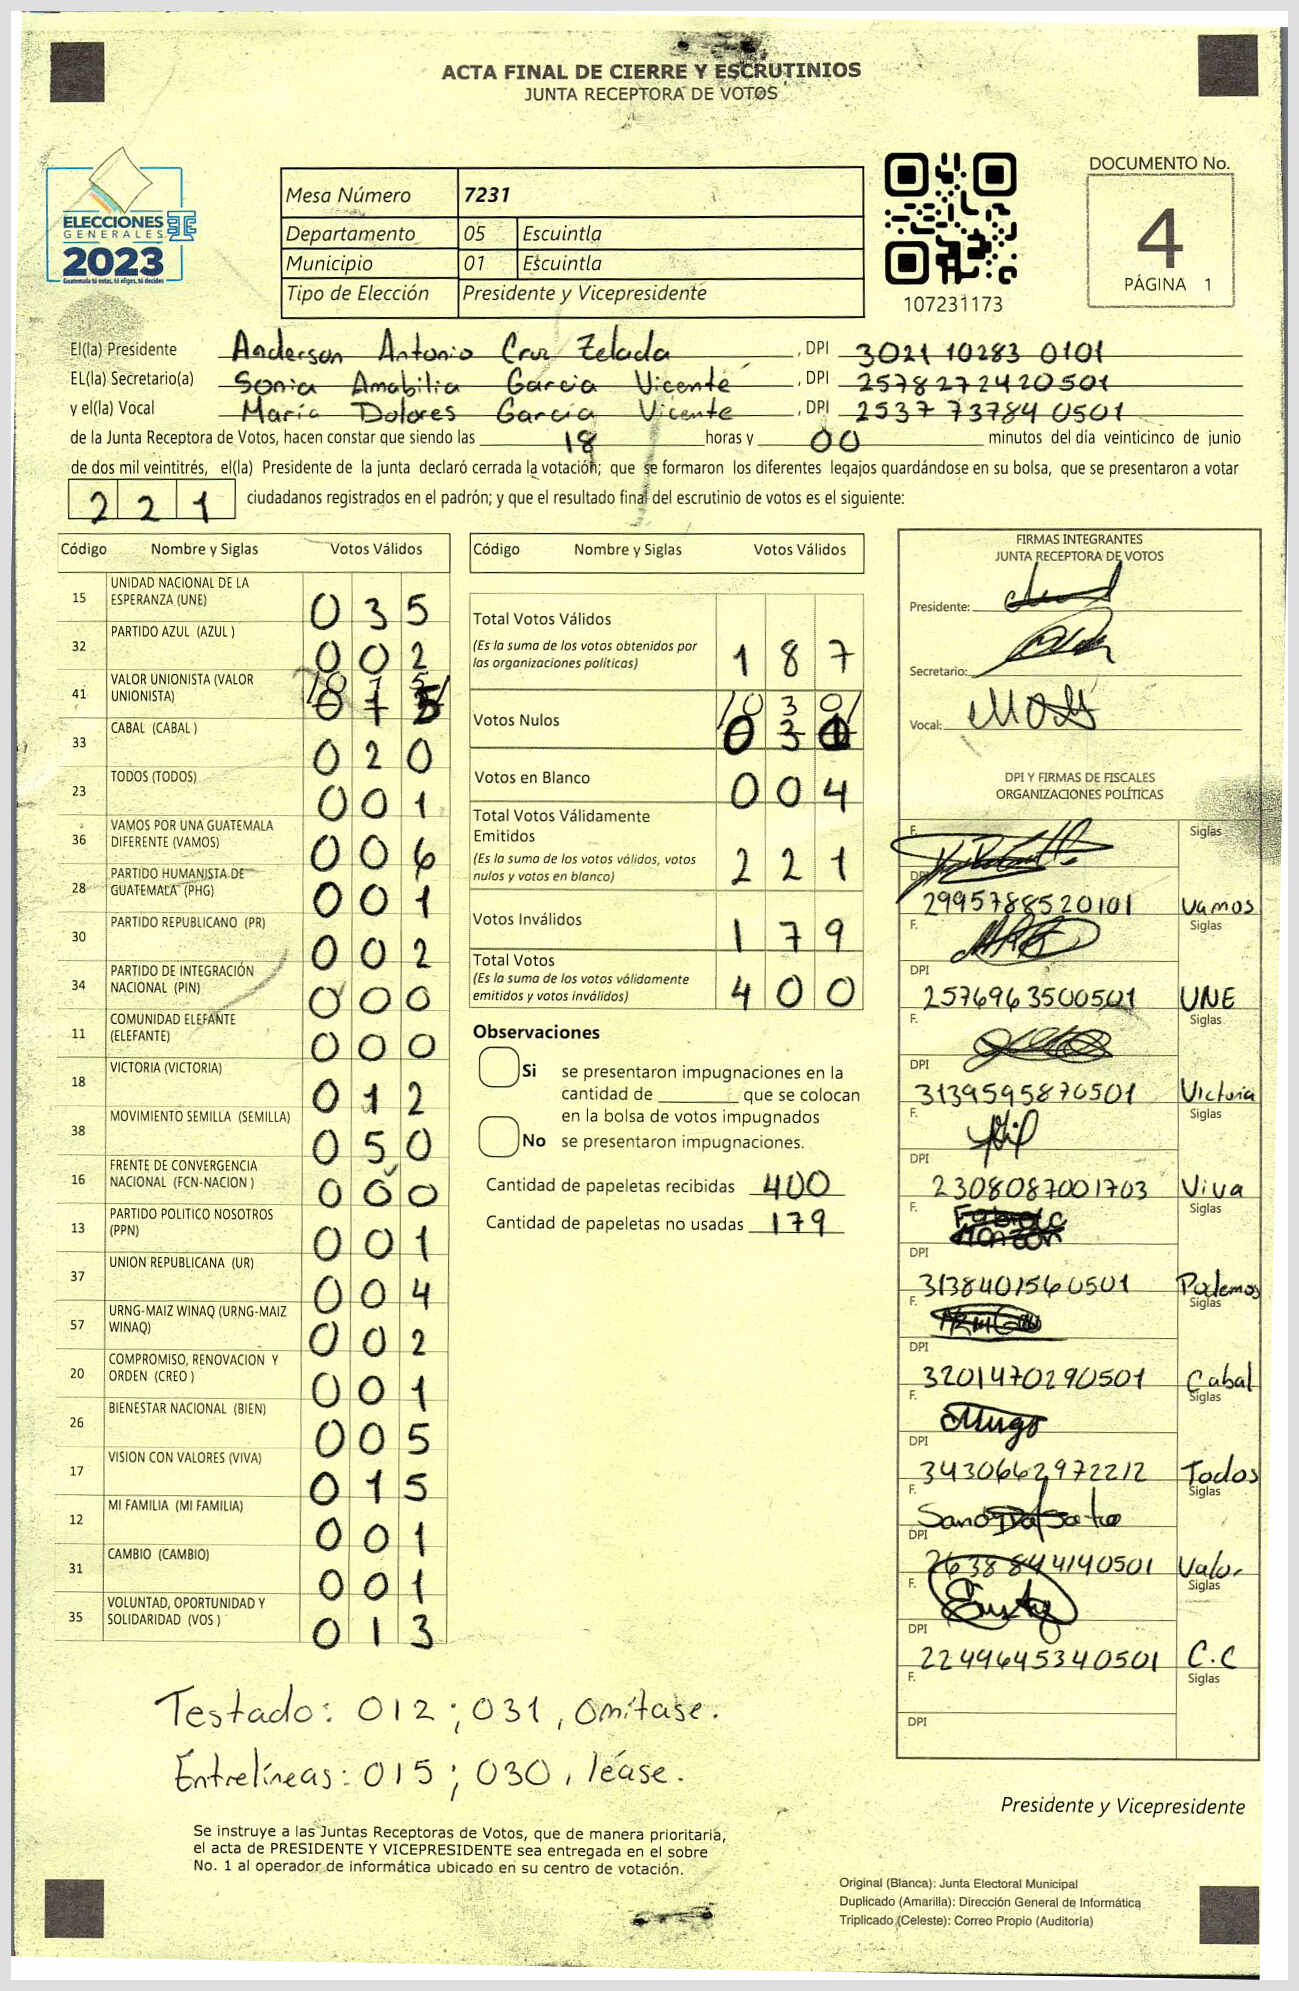 ACTA FINAL DE CIERRE Y ESCRUTINIOS
JUNTA RECEPTORA DE VOTOS
ELECCIONES
GENERALES
2023
Guatemala tú votas, tú eliges, tú decides
Mesa Número 7231
Departamento 05 Escuintla
Municipio 01 Escuintla
Tipo de Elección Presidente y Vicepresidente
107231173
DOCUMENTO No.
4
PÁGINA 1
El(la) Presidente Anderson Antonio Cruz Zelada , DPI 3021 10283 0101
EL(la) Secretario(a) Sonia Amabilia Garcia Vicente , DPI 2578272420501
y el(la) Vocal María Dolores García Vicente , DPI 2537 73784 0501
de la Junta Receptora de Votos, hacen constar que siendo las 18 horas y 00 minutos del día veinticinco de junio
de dos mil veintitrés, el(la) Presidente de la junta declaró cerrada la votación; que se formaron los diferentes legajos guardándose en su bolsa, que se presentaron a votar
221 ciudadanos registrados en el padrón; y que el resultado final del escrutinio de votos es el siguiente:
Código Nombre y Siglas Votos Válidos
15 UNIDAD NACIONAL DE LA ESPERANZA (UNE) 035
32 PARTIDO AZUL (AZUL ) 002
41 VALOR UNIONISTA (VALOR UNIONISTA) 015
33 CABAL (CABAL ) 020
23 TODOS (TODOS) 001
36 VAMOS POR UNA GUATEMALA DIFERENTE (VAMOS) 006
28 PARTIDO HUMANISTA DE GUATEMALA (PHG) 001
30 PARTIDO REPUBLICANO (PR) 002
34 PARTIDO DE INTEGRACIÓN NACIONAL (PIN) 000
11 COMUNIDAD ELEFANTE (ELEFANTE) 000
18 VICTORIA (VICTORIA) 012
38 MOVIMIENTO SEMILLA (SEMILLA) 050
16 FRENTE DE CONVERGENCIA NACIONAL (FCN-NACION ) 000
13 PARTIDO POLITICO NOSOTROS (PPN) 001
37 UNION REPUBLICANA (UR) 004
57 URNG-MAIZ WINAQ (URNG-MAIZ WINAQ) 002
20 COMPROMISO, RENOVACION Y ORDEN (CREO ) 001
26 BIENESTAR NACIONAL (BIEN) 005
17 VISION CON VALORES (VIVA) 015
12 MI FAMILIA (MI FAMILIA) 001
31 CAMBIO (CAMBIO) 001
35 VOLUNTAD, OPORTUNIDAD Y SOLIDARIDAD (VOS ) 013
Código Nombre y Siglas Votos Válidos
Total Votos Válidos
(Es la suma de los votos obtenidos por las organizaciones políticas) 187
Votos Nulos 030
Votos en Blanco 004
Total Votos Válidamente Emitidos
(Es la suma de los votos válidos, votos nulos y votos en blanco) 221
Votos Inválidos 179
Total Votos
(Es la suma de los votos válidamente emitidos y votos inválidos) 400
Observaciones
Si se presentaron impugnaciones en la
cantidad de ________ que se colocan
en la bolsa de votos impugnados
No se presentaron impugnaciones.
Cantidad de papeletas recibidas 400
Cantidad de papeletas no usadas 179
FIRMAS INTEGRANTES
JUNTA RECEPTORA DE VOTOS
Presidente:
Secretario:
Vocal:
DPI Y FIRMAS DE FISCALES
ORGANIZACIONES POLÍTICAS
F. Siglas
DPI 2995788520101 Vamos
F. Siglas
DPI 2576963500501 UNE
F. Siglas
DPI 3139595870501 Victoria
F. Siglas
DPI 2308087001703 Viva
F. Siglas
DPI 3138401560501 Podemos
F. Siglas
DPI 3201470290501 Cabal
F. Siglas
DPI 3430662972212 Todos
F. Siglas
DPI 2638844140501 Valor
F. Siglas
DPI 2249645340501 C.C
F. Siglas
DPI
Testado: 012 ; 031 , omítase.
Entrelíneas: 015 ; 030 , léase.
Presidente y Vicepresidente
Se instruye a las Juntas Receptoras de Votos, que de manera prioritaria,
el acta de PRESIDENTE Y VICEPRESIDENTE sea entregada en el sobre
No. 1 al operador de informática ubicado en su centro de votación.
Original (Blanca): Junta Electoral Municipal
Duplicado (Amarilla): Dirección General de Informática
Triplicado (Celeste): Correo Propio (Auditoría)